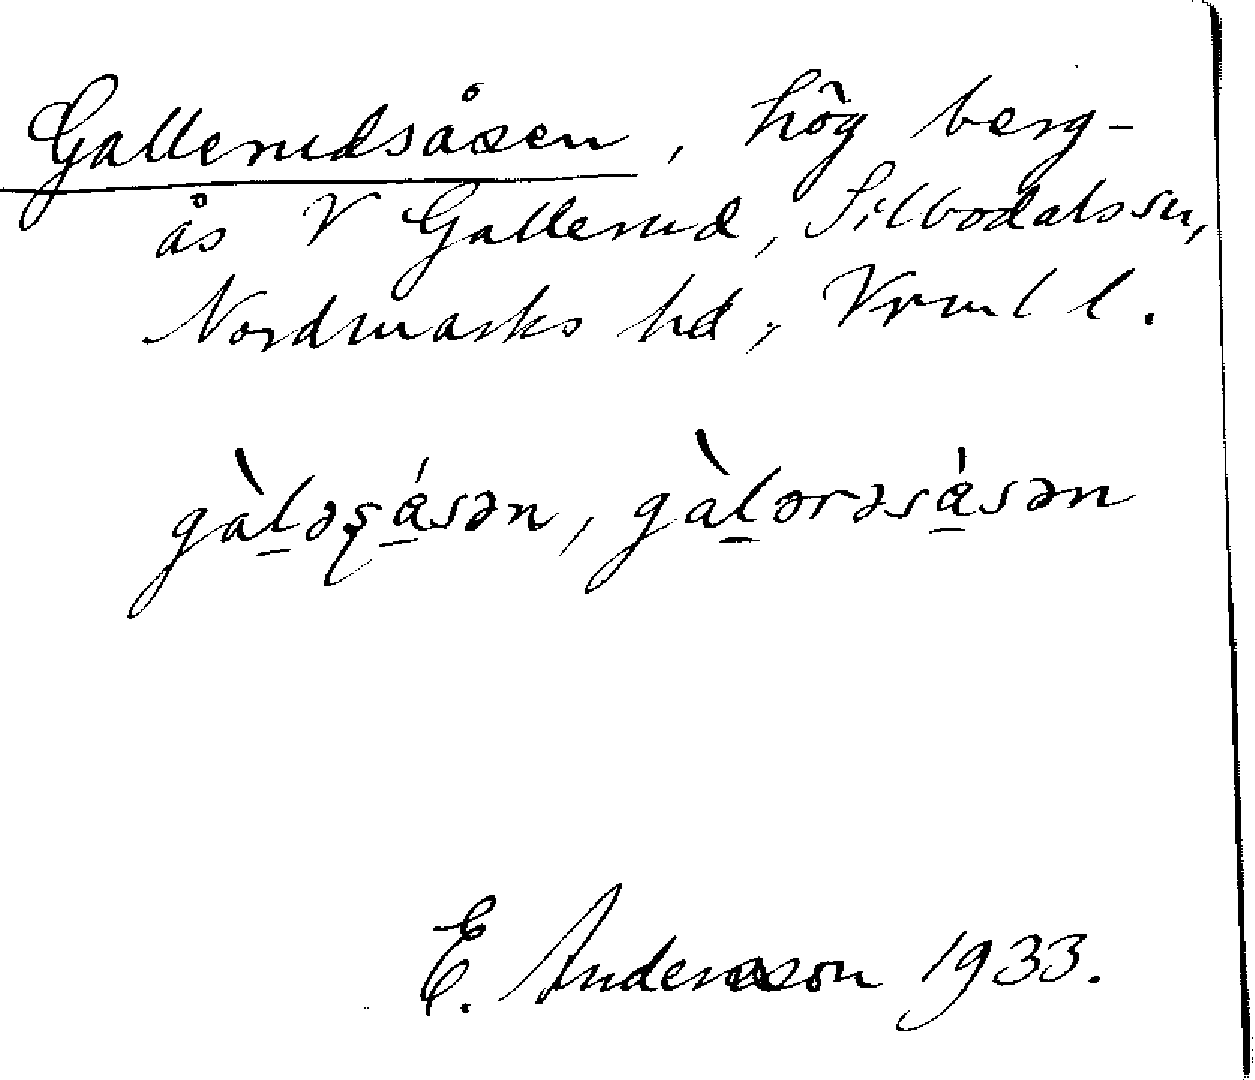 Gallerudsåsen, hög berg-
ås V Gallerud, Silbodals sn,
Nordmarks hd, Vrml l.
gàl̠əʂá̠sən, gàl̠ərəsá̠sən
E. Andersson 1933.